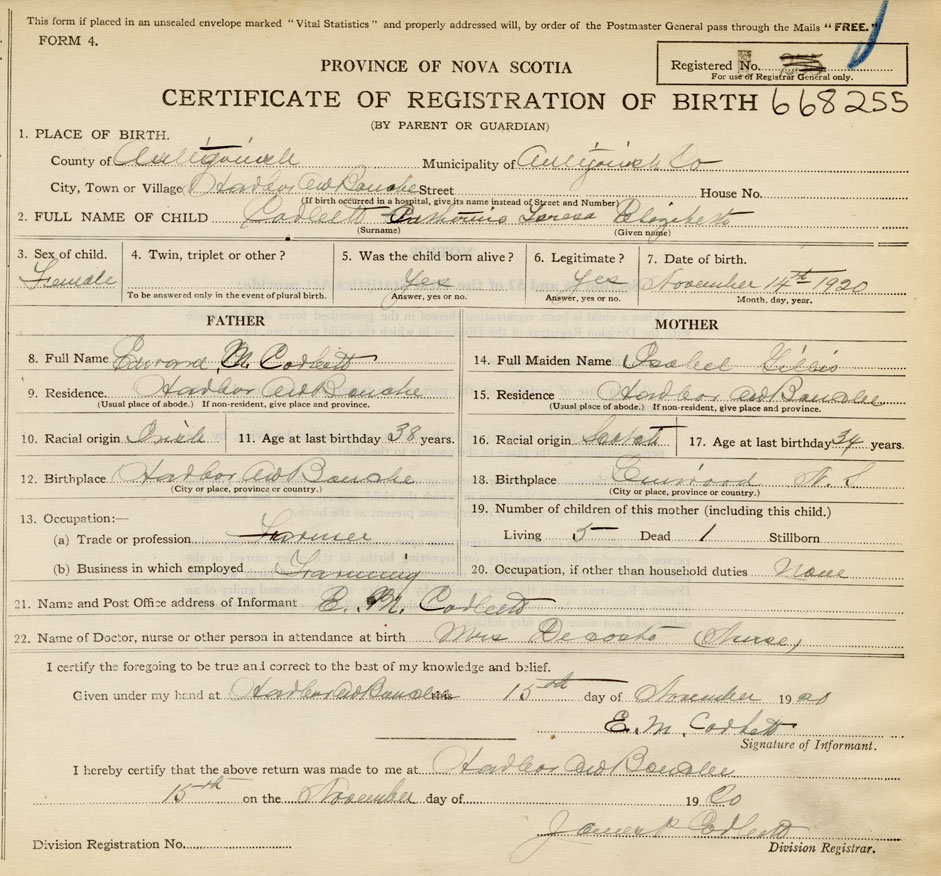 This form if placed in an unsealed envelope marked "Vital Statistics" and properly addressed will, by order of the Postmaster General pass through the Mails "FREE."
FORM 4.
Registered No.
For use of Registrar General only.
PROVINCE OF NOVA SCOTIA
CERTIFICATE OF REGISTRATION OF BIRTH 668255
(BY PARENT OR GUARDIAN)
1. PLACE OF BIRTH.
County of Antigonish Municipality of Antigonish Co
City, Town or Village Harbor Au Bouche Street House No.
(If birth occurred in a hospital, give its name instead of Street and Number)
2. FULL NAME OF CHILD Corbett Catherine Teresa Elizabeth
(Surname) (Given name)
3. Sex of child. 4. Twin, triplet or other? 5. Was the child born alive? 6. Legitimate? 7. Date of birth.
Female Yes Yes November 14th 1920
To be answered only in the event of plural birth. Answer, yes or no. Answer, yes or no. Month, day, year.
FATHER MOTHER
8. Full Name Edward M. Corbett 14. Full Maiden Name Isabel Gillis
9. Residence. Harbor Au Bouche 15. Residence Harbor Au Bouche
(Usual place of abode.) If non-resident, give place and province. (Usual place of abode.) If non-resident, give place and province.
10. Racial origin Irish 11. Age at last birthday 38 years. 16. Racial origin Scotch 17. Age at last birthday 34 years.
12. Birthplace Harbor Au Bouche 18. Birthplace N. S
(City or place, province or country.) (City or place, province or country.)
13. Occupation:— 19. Number of children of this mother (including this child.)
(a) Trade or profession. Farmer Living 5 Dead 1 Stillborn
(b) Business in which employed Farming 20. Occupation, if other than household duties None
21. Name and Post Office address of Informant E. M. Corbett
22. Name of Doctor, nurse or other person in attendance at birth Mrs Decoste (Nurse)
I certify the foregoing to be true and correct to the best of my knowledge and belief.
Given under my hand at Harbor Au Bouche this 15th day of November 1920
E. M. Corbett
Signature of Informant.
I hereby certify that the above return was made to me at Harbor Au Bouche
15th on the November day of 1920
James P Corbett
Division Registration No. Division Registrar.